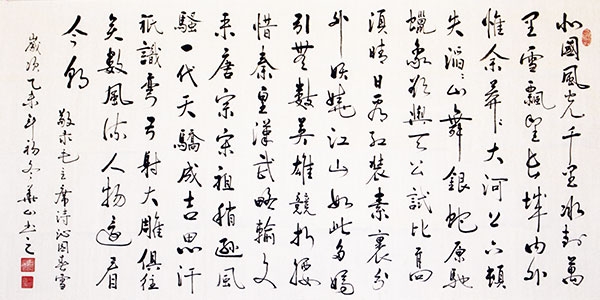 北國風光千里冰封萬
里雪飄望長城內外
惟余莽〻大河上下頓
失滔〻山舞銀蛇原馳
蠟象欲與天公試比高
須晴日看紅裝素裹分
外妖嬈江山如此多嬌
引無數英雄競折腰
惜秦皇漢武略輸文
采唐宗宋祖稍遜風
騷一代天驕成吉思汗
祇識彎弓射大雕俱往
矣數風流人物還看
今朝
敬录毛主席詩沁園春雪
歲次乙未年初冬華山書之